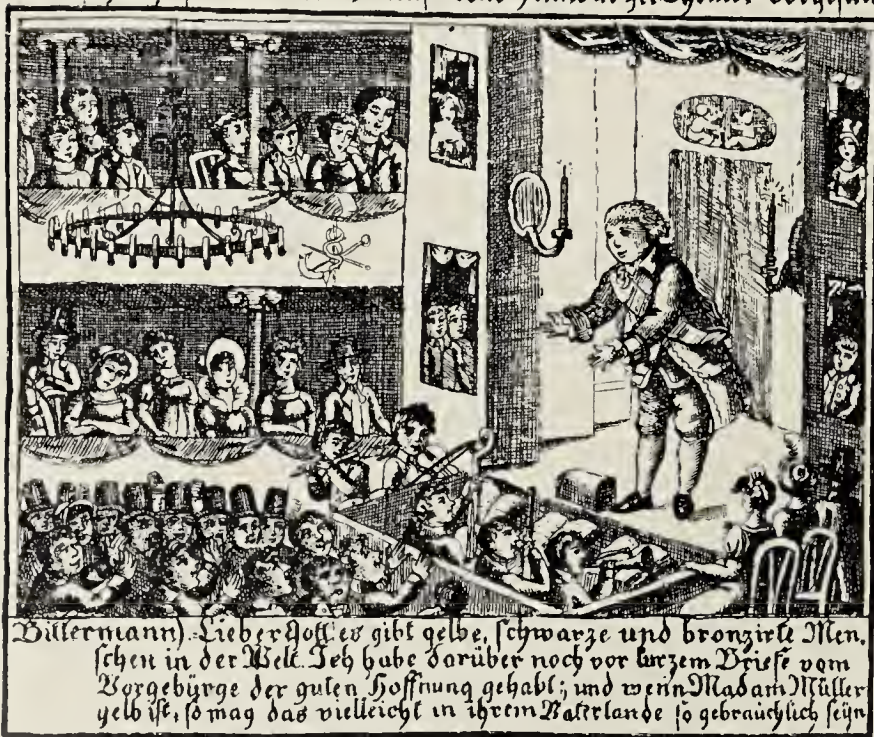 Bittermann). Lieber Gott! es gibt gelbe, schwarze und bronzirte Men,
schen in der Welt. Ich habe darüber noch vor kurzem Briefe vom
Vorgebürge der guten Hoffnung gehabt; und wenn Madam Müller
gelb ist, so mag das vielleicht in ihrem Vaterlande so gebräuchlich seÿn